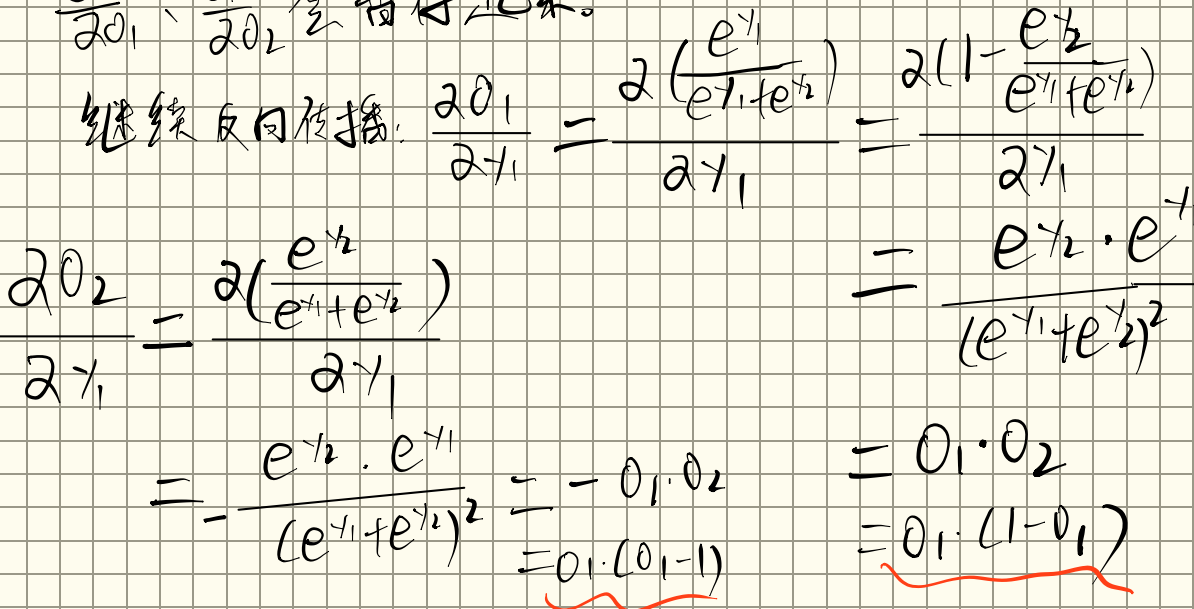 ∂O₁、∂O₂会
继续反向传播: ∂O₁/∂y₁ = ∂(e^y₁/(e^y₁+e^y₂))/∂y₁ = ∂(1-e^y₂/(e^y₁+e^y₂))/∂y₁
= e^y₂·e^y₁/(e^y₁+e^y₂)²
= O₁·O₂
= O₁·(1-O₁)
∂O₂/∂y₁ = ∂(e^y₂/(e^y₁+e^y₂))/∂y₁
= -e^y₂·e^y₁/(e^y₁+e^y₂)² = -O₁·O₂
= O₁·(O₁-1)